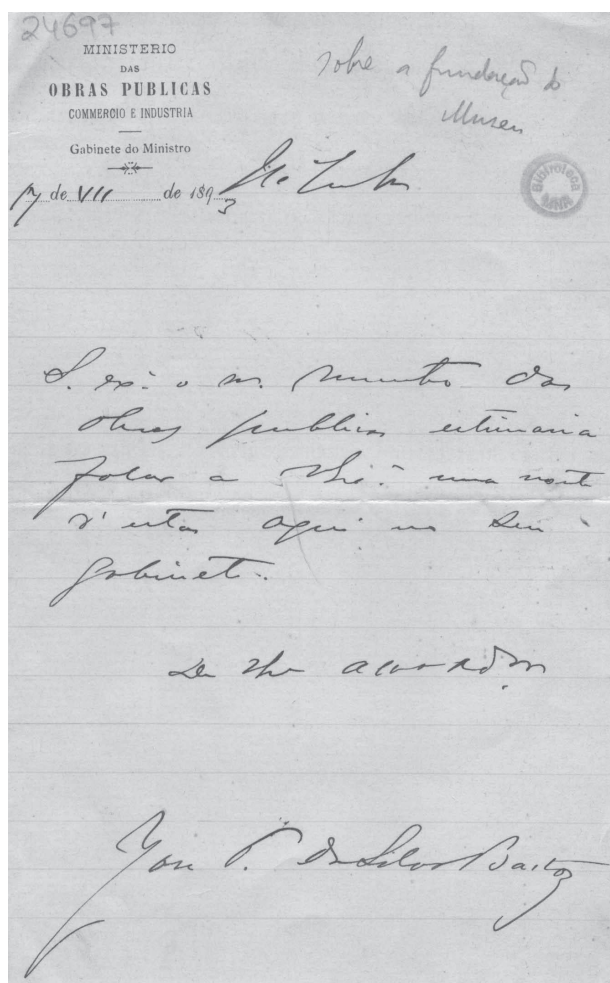 24697
MINISTERIO
DAS
OBRAS PUBLICAS
COMMERCIO E INDUSTRIA
Gabinete do Ministro
sobre a fundação do
Museu
17 de VII de 1893
Biblioteca
S. exª o sr. ministro das
obras publicas estimaria
falar a V. exª uma noite
d'estas aqui no seu
gabinete.
De V. exª
José P. da Silva Bastos